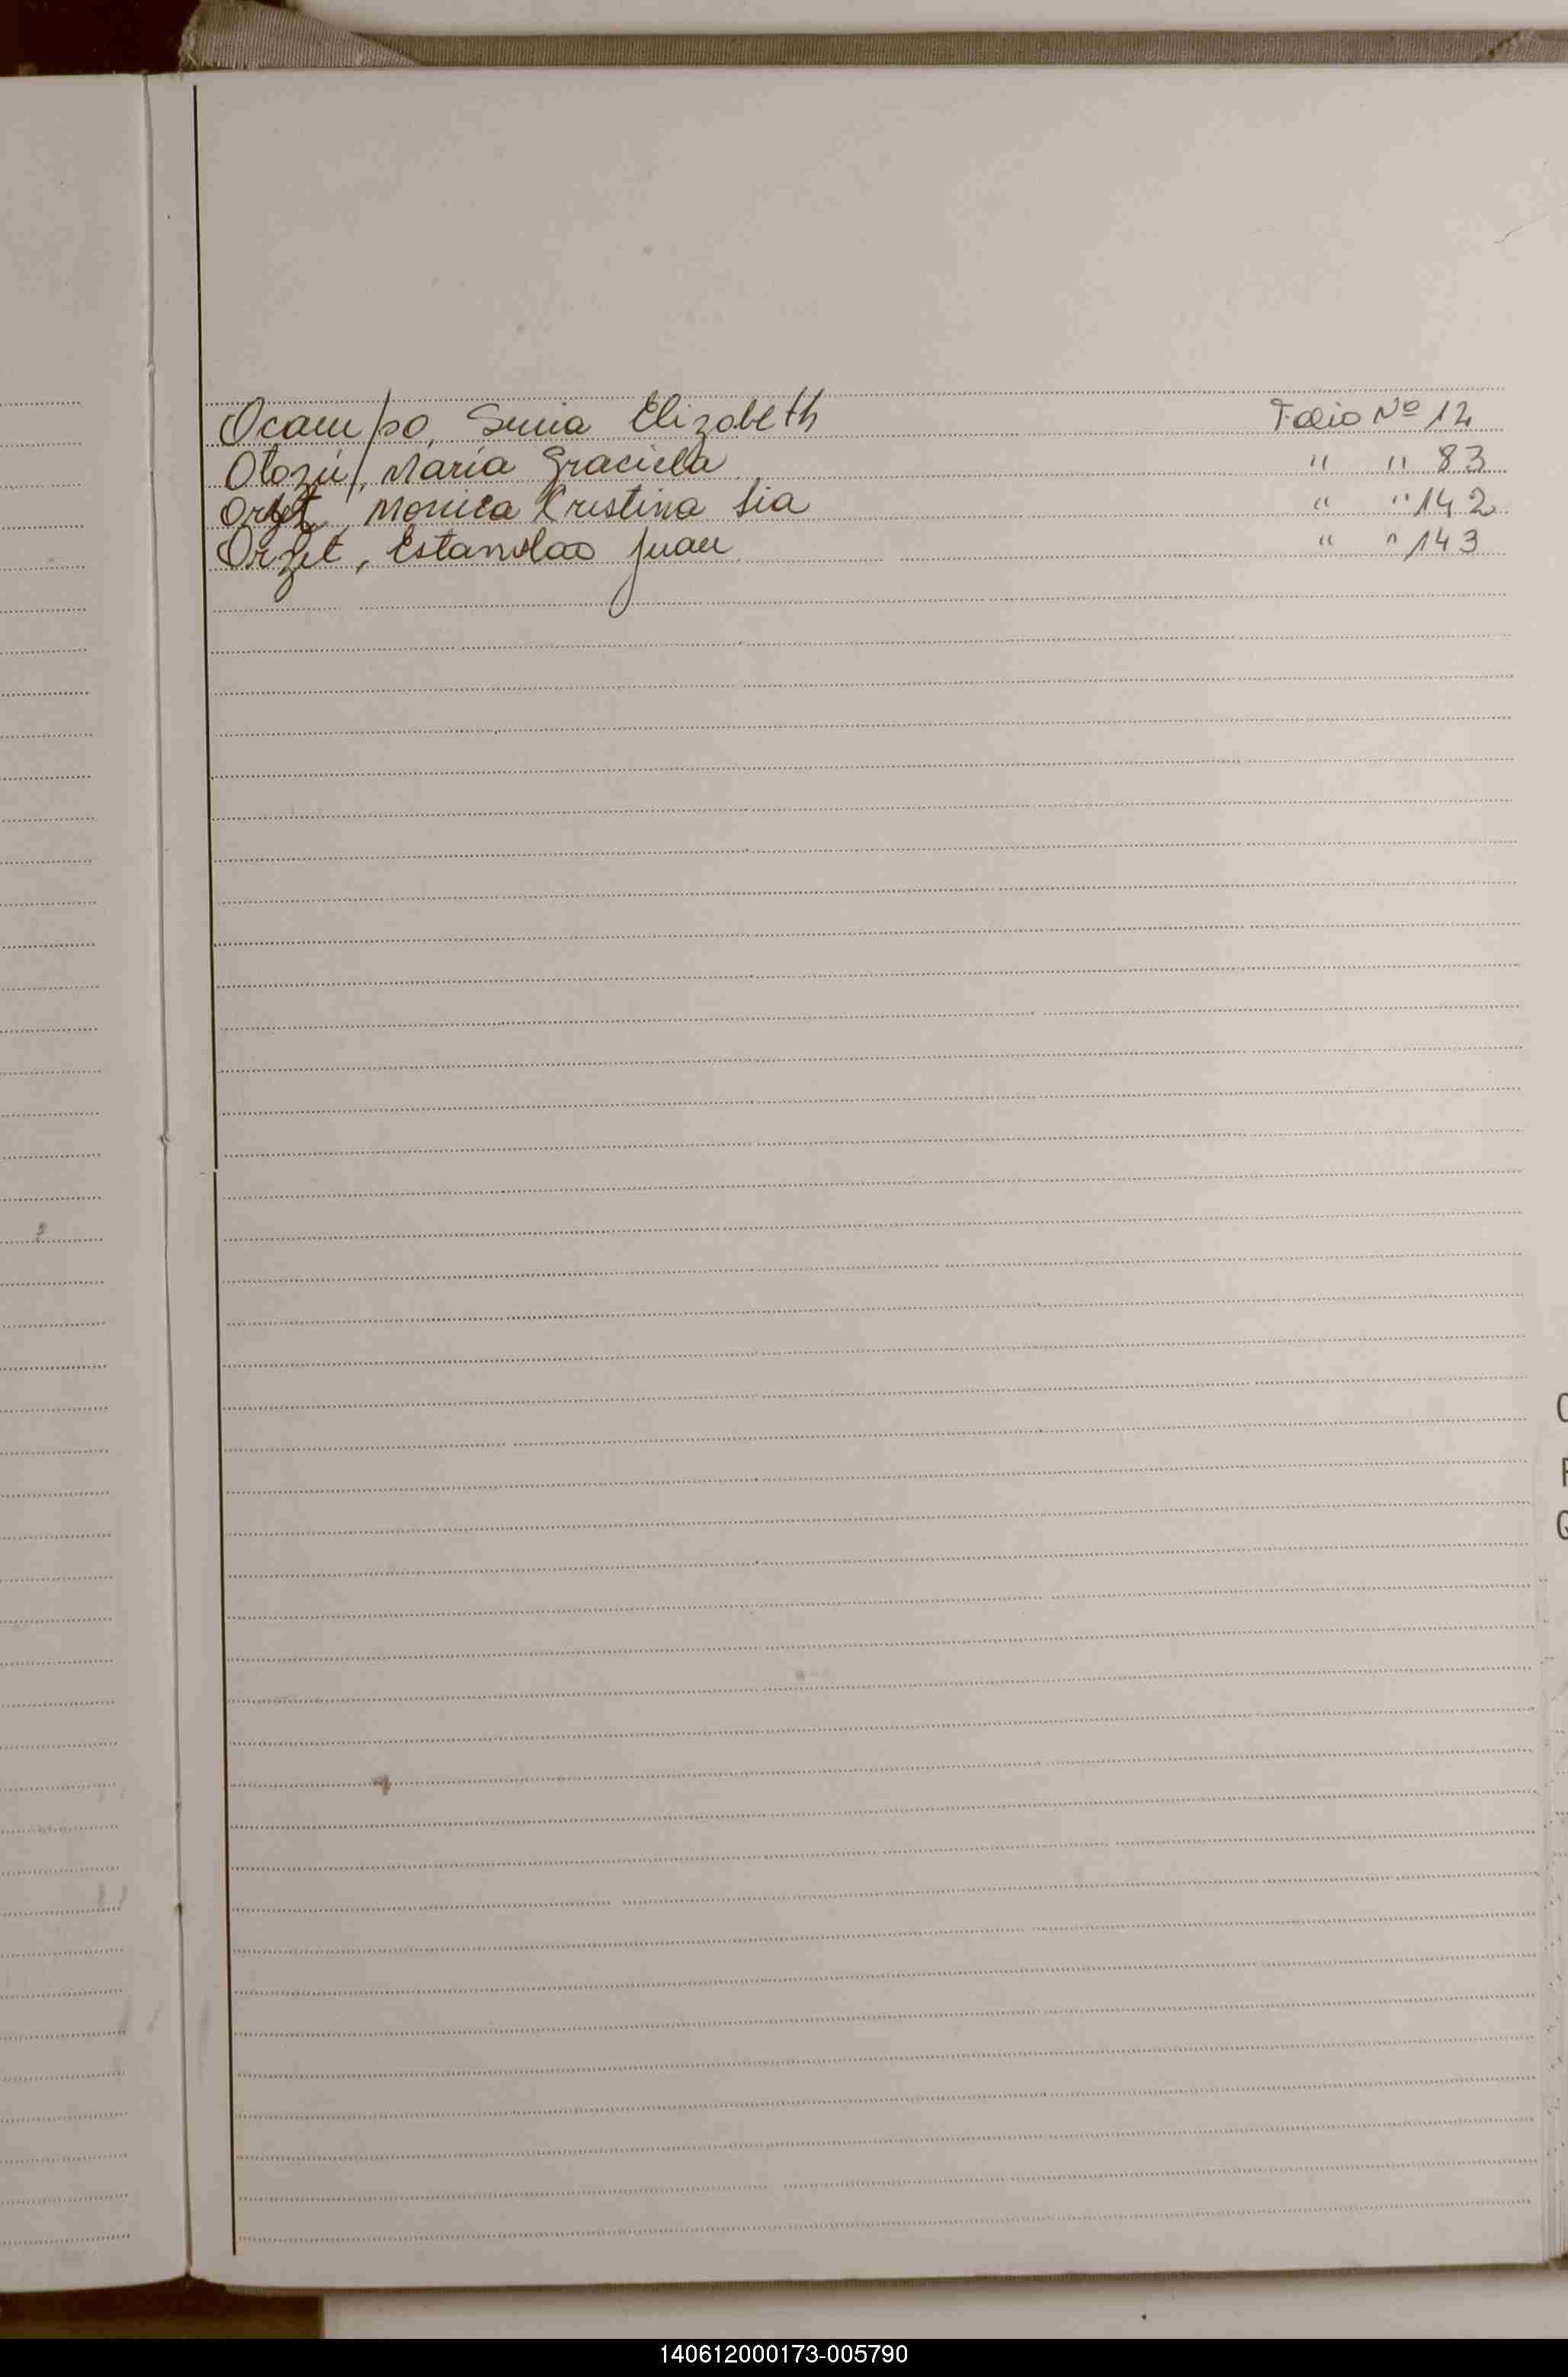 Ocampo, Sunia Elizabeth Folio Nº 12
Olozú, María Graciela " " 83
Orzet, Monica Kristina Lia " " 142
Orzet, Estanislao Juan " " 143
P
Q
140612000173-005790